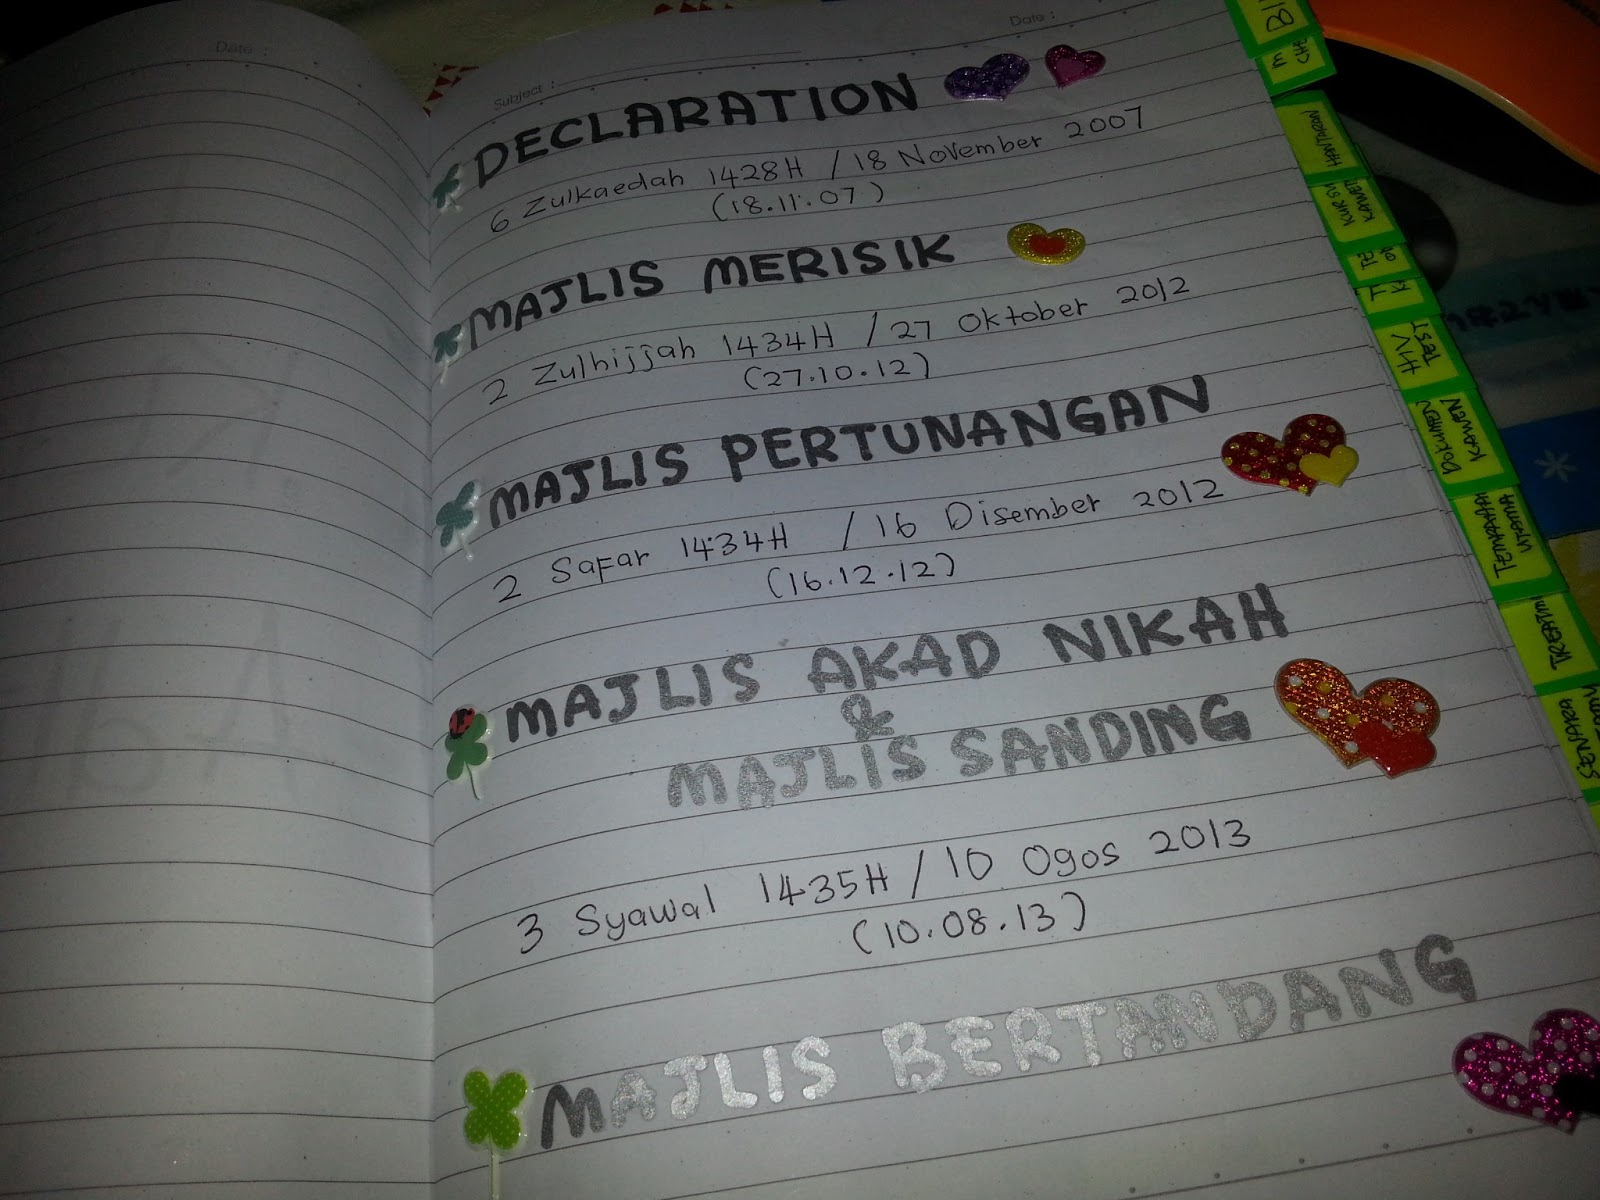 Date :
Date :
Subject :
DECLARATION
6 Zulkaedah 1428H / 18 November 2007
(18.11.07)
MAJLIS MERISIK
2 Zulhijjah 1434H / 27 Oktober 2012
(27.10.12)
MAJLIS PERTUNANGAN
2 Safar 1434H / 16 Disember 2012
(16.12.12)
MAJLIS AKAD NIKAH
&
MAJLIS SANDING
3 Syawal 1435H / 10 Ogos 2013
(10.08.13)
MAJLIS BERTANDANG
HANTARAN
KURSUS
KAWEN
HIV
TEST
DOKUMEN
KAWEN
TEMPAHAN
UTAMA
SENARAI